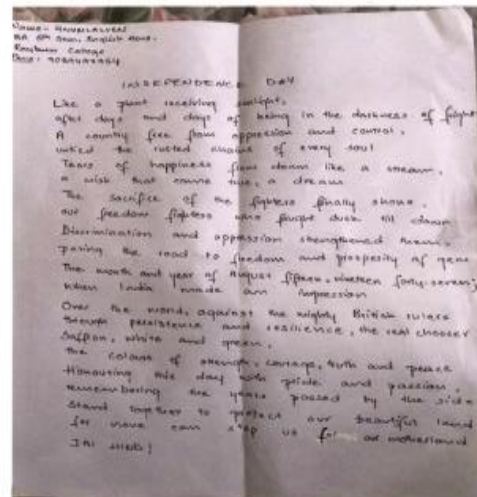 BA 6th Sem, English Hons.
College
INDEPENDENCE DAY
Like a plant receiving sunlight,
after days and days of being in the darkness of
A country free from oppression and control,
untied the rusted chains of every soul
Tears of happiness flow down like a stream,
a wish that came true, a dream
The sacrifice of the fighters finally shone,
our freedom fighters who fought dusk till dawn
Discrimination and oppression strengthened them,
paving the road to freedom and prosperity of
The month and year of August fifteen, nineteen forty-seven,
when India made an impression
Over the world, against the mighty British rulers
through persistence and resilience, the real
Saffron, white and green,
the colours of strength, courage, truth and peace
Honouring this day with pride and passion,
remembering the years passed by the side
Stand together to protect our beautiful land
for none can stop us our motherland
JAI HIND!